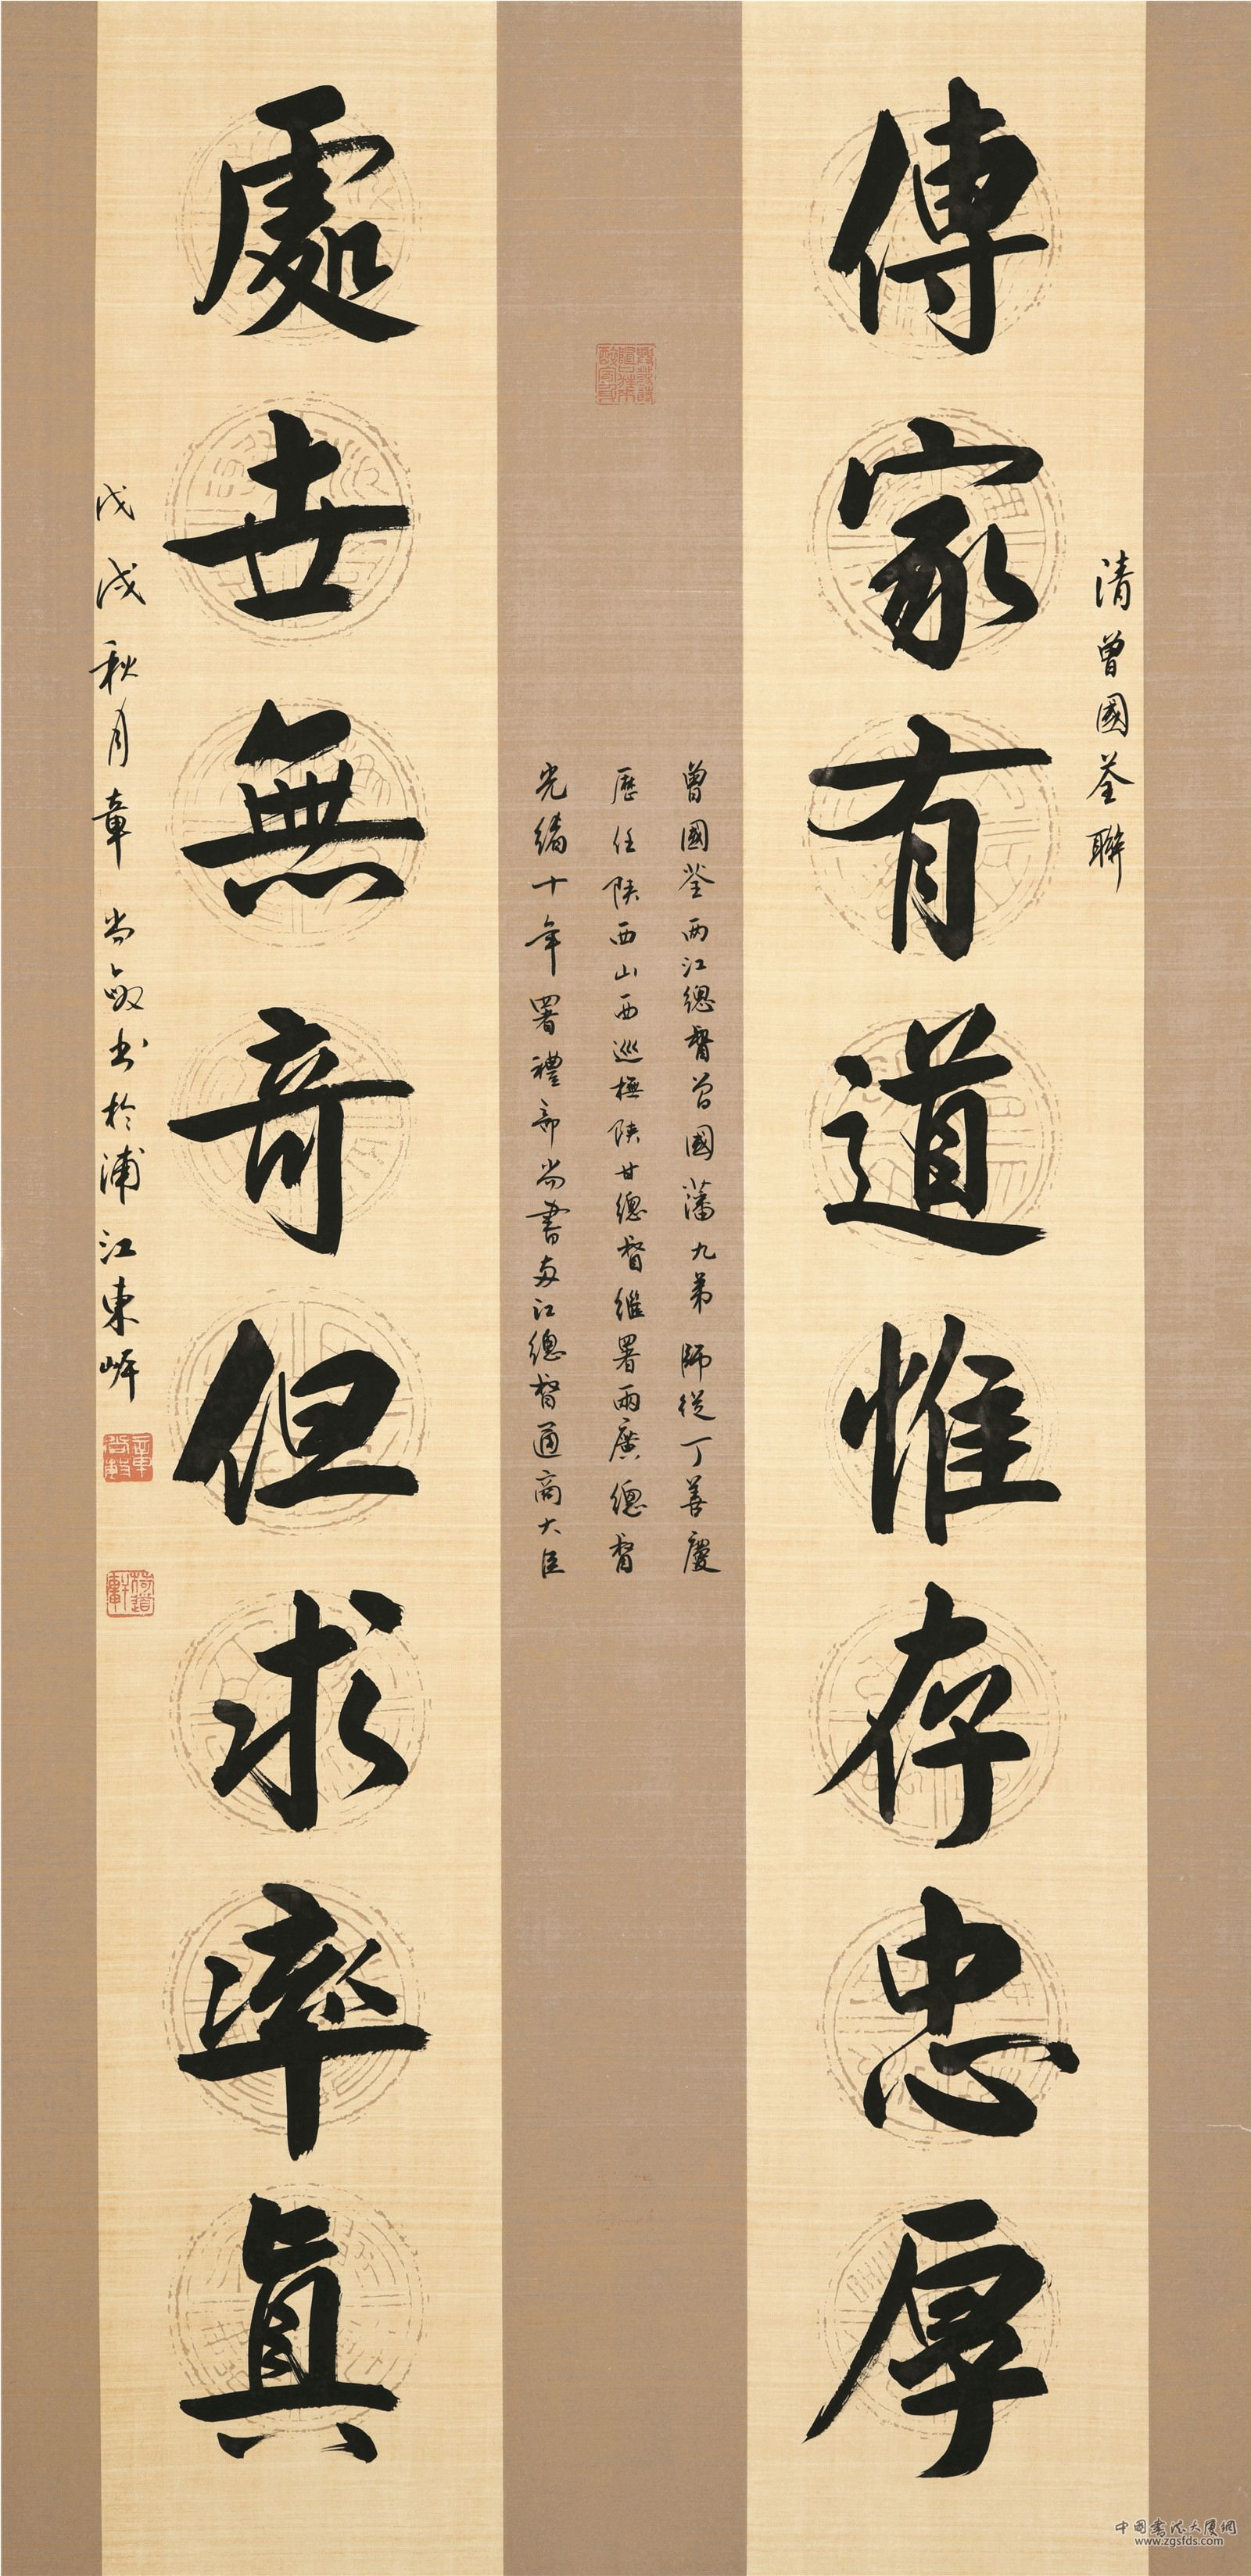 清曾國荃聯
傳家有道惟存忠厚
曾國荃兩江總督曾國藩九弟 師從丁善慶
歷任陝西山西巡撫陝甘總督繼署兩廣總督
光緒十年署禮部尚書兩江總督通商大臣
處世無奇但求率真
戊戌秋月章尚敏書於浦江東岸
中國書法大廈網
www.zgsfds.com